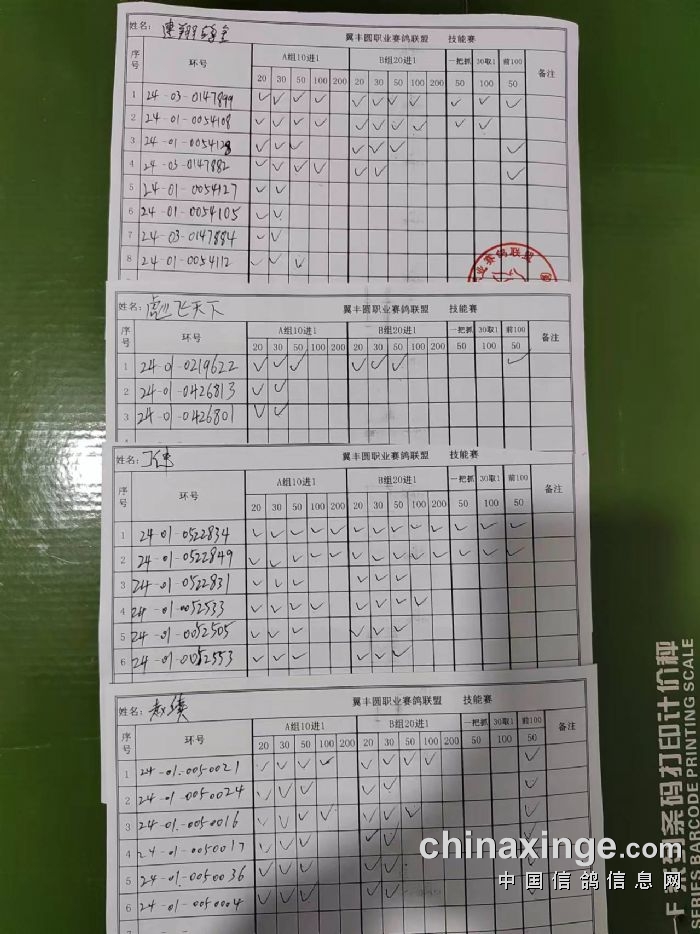 姓名: 翼丰圆职业赛鸽联盟 技能赛
序号 环号 A组10进1 B组20进1 一把抓 30取1 前100 备注
20 30 50 100 200 20 30 50 100 200 50 100 50
1 24-03-0147899 ✓ ✓ ✓ ✓ ✓ ✓ ✓ ✓ ✓ ✓ ✓
2 24-01-0054108 ✓ ✓ ✓ ✓ ✓ ✓ ✓ ✓ ✓ ✓
3 24-01-0054128 ✓ ✓ ✓ ✓ ✓ ✓ ✓
4 24-03-0147882 ✓ ✓ ✓ ✓ ✓ ✓ ✓
5 24-01-0054127 ✓ ✓
6 24-01-0054105 ✓ ✓
7 24-03-0147884 ✓ ✓
8 24-01-0054112 ✓ ✓ ✓
业赛鸽联盟
姓名: 飞天下 翼丰圆职业赛鸽联盟 技能赛
序号 环号 A组10进1 B组20进1 一把抓 30取1 前100 备注
20 30 50 100 200 20 30 50 100 200 50 100 50
1 24-01-0219622 ✓ ✓ ✓ ✓ ✓ ✓ ✓
2 24-01-0426813 ✓ ✓
3 24-01-0426801 ✓ ✓
姓名: 翼丰圆职业赛鸽联盟 技能赛
序号 环号 A组10进1 B组20进1 一把抓 30取1 前100 备注
20 30 50 100 200 20 30 50 100 200 50 100 50
1 24-01-0522834 ✓ ✓ ✓ ✓ ✓ ✓ ✓ ✓ ✓ ✓ ✓ ✓ ✓
2 24-01-0522849 ✓ ✓ ✓ ✓ ✓ ✓ ✓ ✓ ✓ ✓ ✓ ✓ ✓
3 24-01-0522831 ✓ ✓ ✓ ✓ ✓ ✓
4 24-01-0052533 ✓ ✓ ✓ ✓ ✓ ✓ ✓ ✓
5 24-01-0052505 ✓ ✓ ✓ ✓ ✓ ✓
6 24-01-0052553 ✓ ✓ ✓ ✓ ✓ ✓
姓名: 翼丰圆职业赛鸽联盟 技能赛
序号 环号 A组10进1 B组20进1 一把抓 30取1 前100 备注
20 30 50 100 200 20 30 50 100 200 50 100 50
1 24-01-0050021 ✓ ✓ ✓ ✓ ✓ ✓ ✓ ✓ ✓
2 24-01-0050024 ✓ ✓ ✓ ✓ ✓ ✓ ✓
3 24-01-0050016 ✓ ✓ ✓ ✓ ✓ ✓ ✓ ✓ ✓
4 24-01-0050017 ✓ ✓ ✓ ✓ ✓ ✓ ✓
5 24-01-0050036 ✓ ✓ ✓ ✓ ✓ ✓ ✓
6 24-01-0050004 ✓ ✓ ✓ ✓ ✓ ✓ ✓
7
条码打印计价秤
SERIES BARCODE PRINTING SCALE
chinaxinge.com
中国信鸽信息网